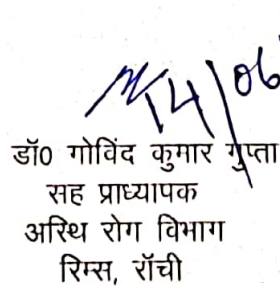 14/06
डॉ0 गोविंद कुमार गुप्ता
सह प्राध्यापक
अस्थि रोग विभाग
रिम्स, रॉची